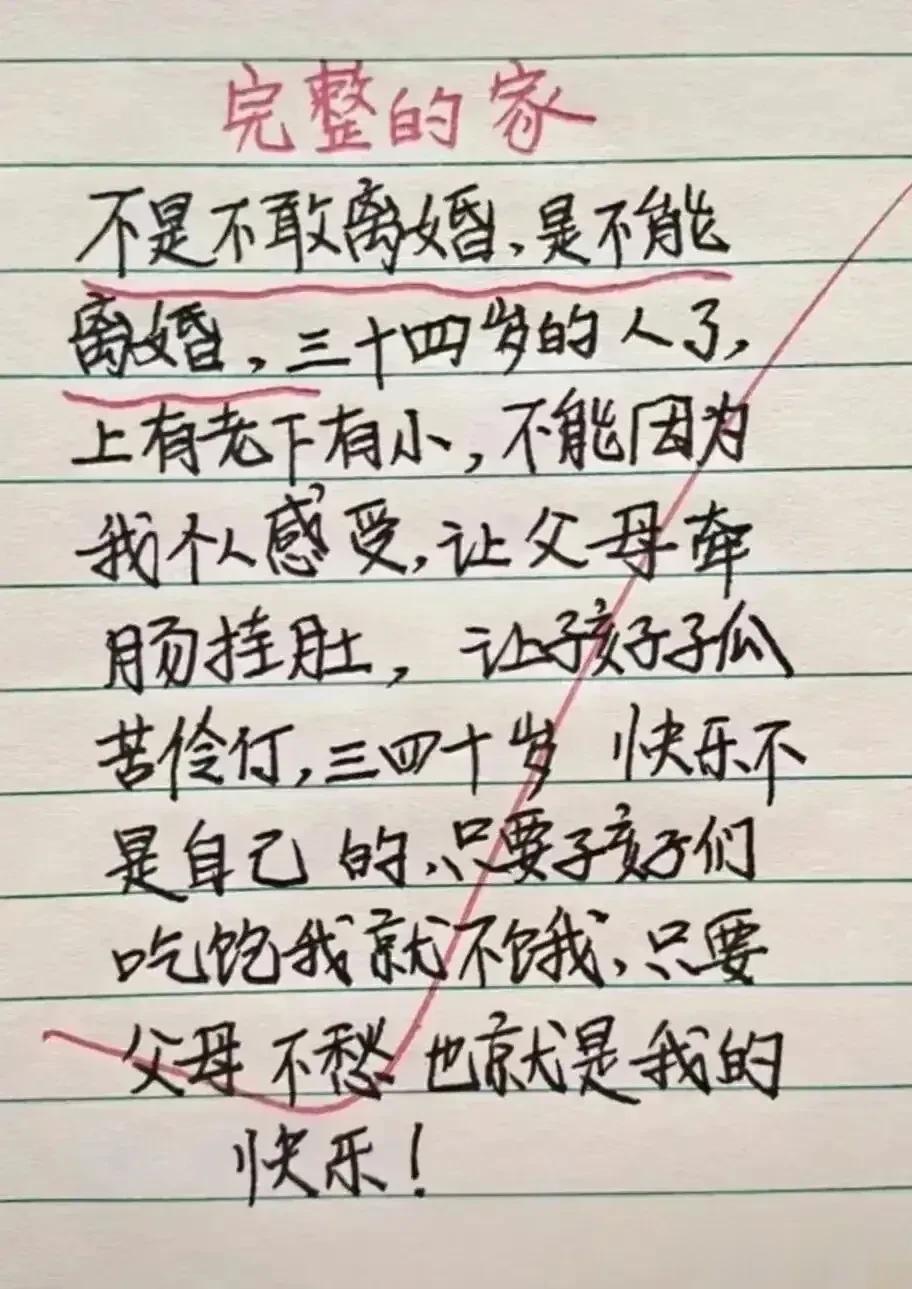 完整的家
不是不敢离婚、是不能
离婚，三十四岁的人了，
上有老下有小，不能因为
我个人感受，让父母牵
肠挂肚，让孩子孤
苦伶仃，三四十岁 快乐不
是自己的、只要孩子们
吃饱我就不饿、只要
父母不愁也就是我的
快乐！